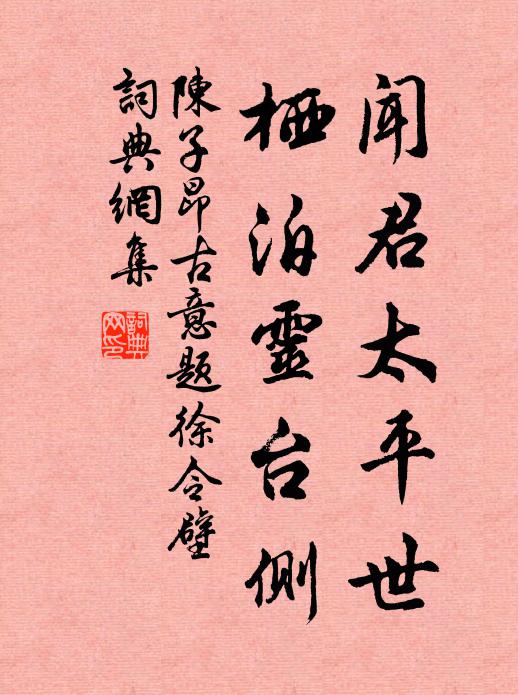 聞君太平世
栖泊靈台側
陳子昂古意題徐令壁
詞典網集
詞典网印